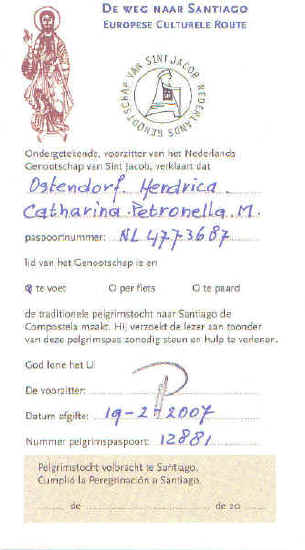 DE WEG NAAR SANTIAGO
EUROPESE CULTURELE ROUTE
NEDERLANDS GENOOTSCHAP VAN SINT JACOB
Ondergetekende, voorzitter van het Nederlands
Genootschap van Sint Jacob, verklaart dat
Ostendorf. Hendrica.
Catharina.Petronella.M.
paspoortnummer: NL4773687
lid van het Genootschap is en
O te voet O per fiets O te paard
de traditionele pelgrimstocht naar Santiago de
Compostela maakt. Hij verzoekt de lezer aan toonder
van deze pelgrimspas zonodig steun en hulp te verlenen.
God lone het U
De voorzitter:
Datum afgifte: 19-2-2007
Nummer pelgrimspaspoort: 12881
Pelgrimstocht volbracht te Santiago.
Cumplió la Peregrinación a Santiago.
de de 20